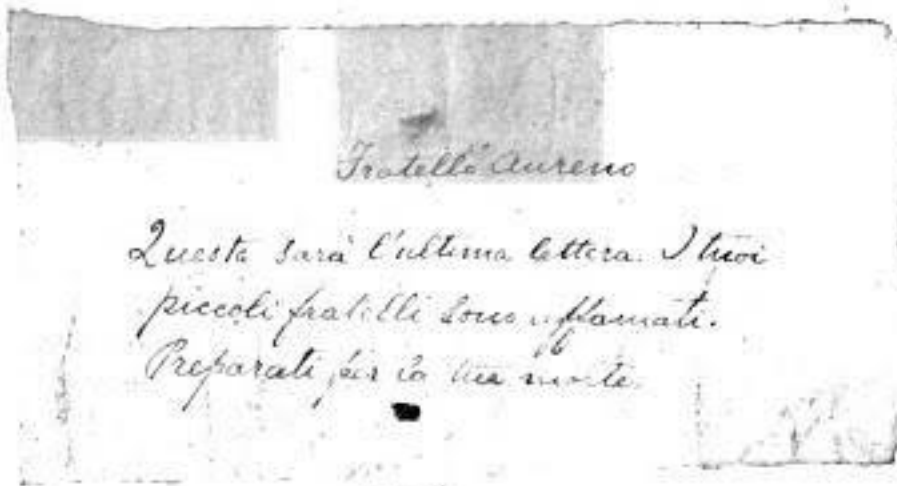 Fratello Aureno
Questa sarà l'ultima lettera. I tuoi
piccoli fratelli sono affamati.
Preparati per la tua morte.